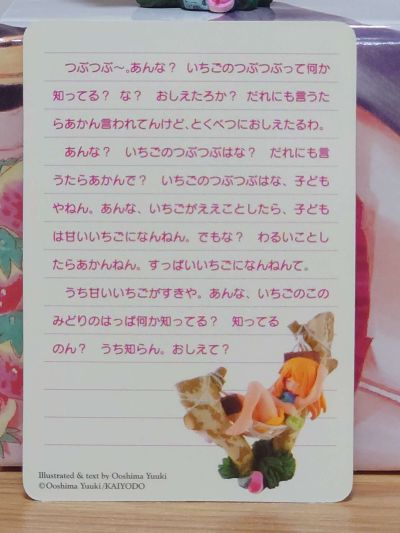 つぶつぶ〜。あんな？　いちごのつぶつぶって何か
知ってる？　な？　おしえたろか？　だれにも言うた
らあかん言われてんけど、とくべつにおしえたるわ。
あんな？　いちごのつぶつぶはな？　だれにも言
うたらあかんで？　いちごのつぶつぶはな、子ども
やねん。あんな、いちごがええことしたら、子ども
は甘いいちごになんねん。でもな？　わるいことし
たらあかんねん。すっぱいいちごになんねんて。
うち甘いいちごがすきや。あんな、いちごのこの
みどりのはっぱ何か知ってる？　知ってる
のん？　うち知らん。おしえて？
Illustrated & text by Ooshima Yuuki
©Ooshima Yuuki/KAIYODO